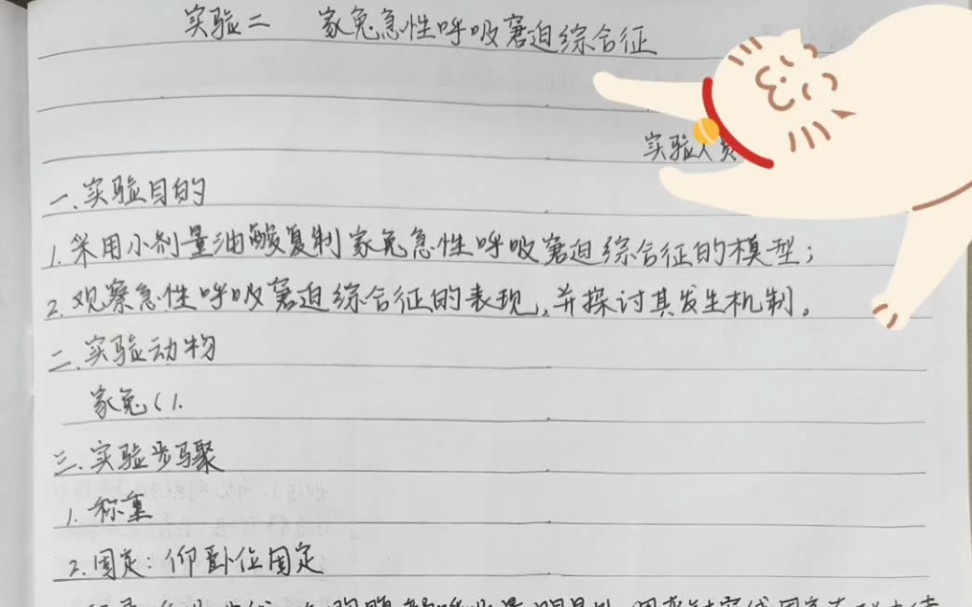 实验二 家兔急性呼吸窘迫综合征
实验人员
一.实验目的
1.采用小剂量油酸复制家兔急性呼吸窘迫综合征的模型;
2.观察急性呼吸窘迫综合征的表现,并探讨其发生机制。
二.实验动物
家兔(1.
三.实验步骤
1.称重
2.固定:仰卧位固定